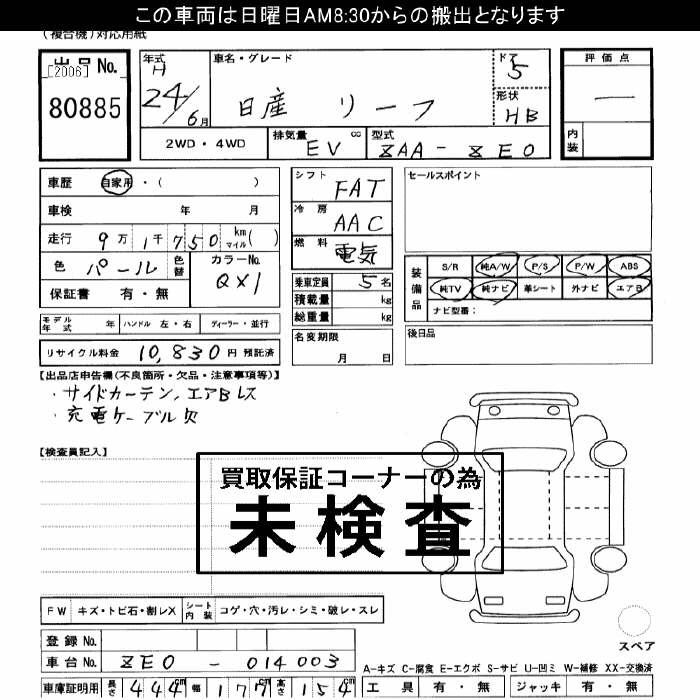 この車両は日曜日AM8:30からの搬出となります
(複合機)対応用紙
出品No.
[2006]
80885
年式
H
24/6月
車名・グレード
日産 リーフ
ドア
5
形状
HB
評価点
―
内装
2WD・4WD
排気量
EV cc
型式
ZAA-ZE0
車歴 自家用・( )
車検 年 月
走行 9万1千750 km マイル( )
色 パール 色替
カラーNo. QX1
保証書 有・無
シフト FAT
冷房 AAC
燃料 電気
乗車定員 5名
積載量 kg
総重量 kg
名変期限
月 日
セールスポイント
装備品
S/R 純A/W P/S P/W ABS
純TV 純ナビ 革シート 外ナビ エアB
ナビ型番:
後日品
モデル年式 年 ハンドル 左・右 ディーラー・並行
リサイクル料金 10,830円 預託済
【出品店申告欄(不良箇所・欠品・注意事項等)】
・サイドカーテン,エアBレス
・充電ケーブル欠
【検査員記入】
買取保証コーナーの為
未検査
FW キズ・トビ石・割レX シート内装 コゲ・穴・汚レ・シミ・破レ・スレ
登録No.
車台No. ZE0-014003
車庫証明用 長さ 444cm 幅 177cm 高さ 154cm
スペア
A-キズ C-腐食 E-エクボ S-サビ U-凹ミ W-補修 XX-交換済
工具 有・無 ジャッキ 有・無